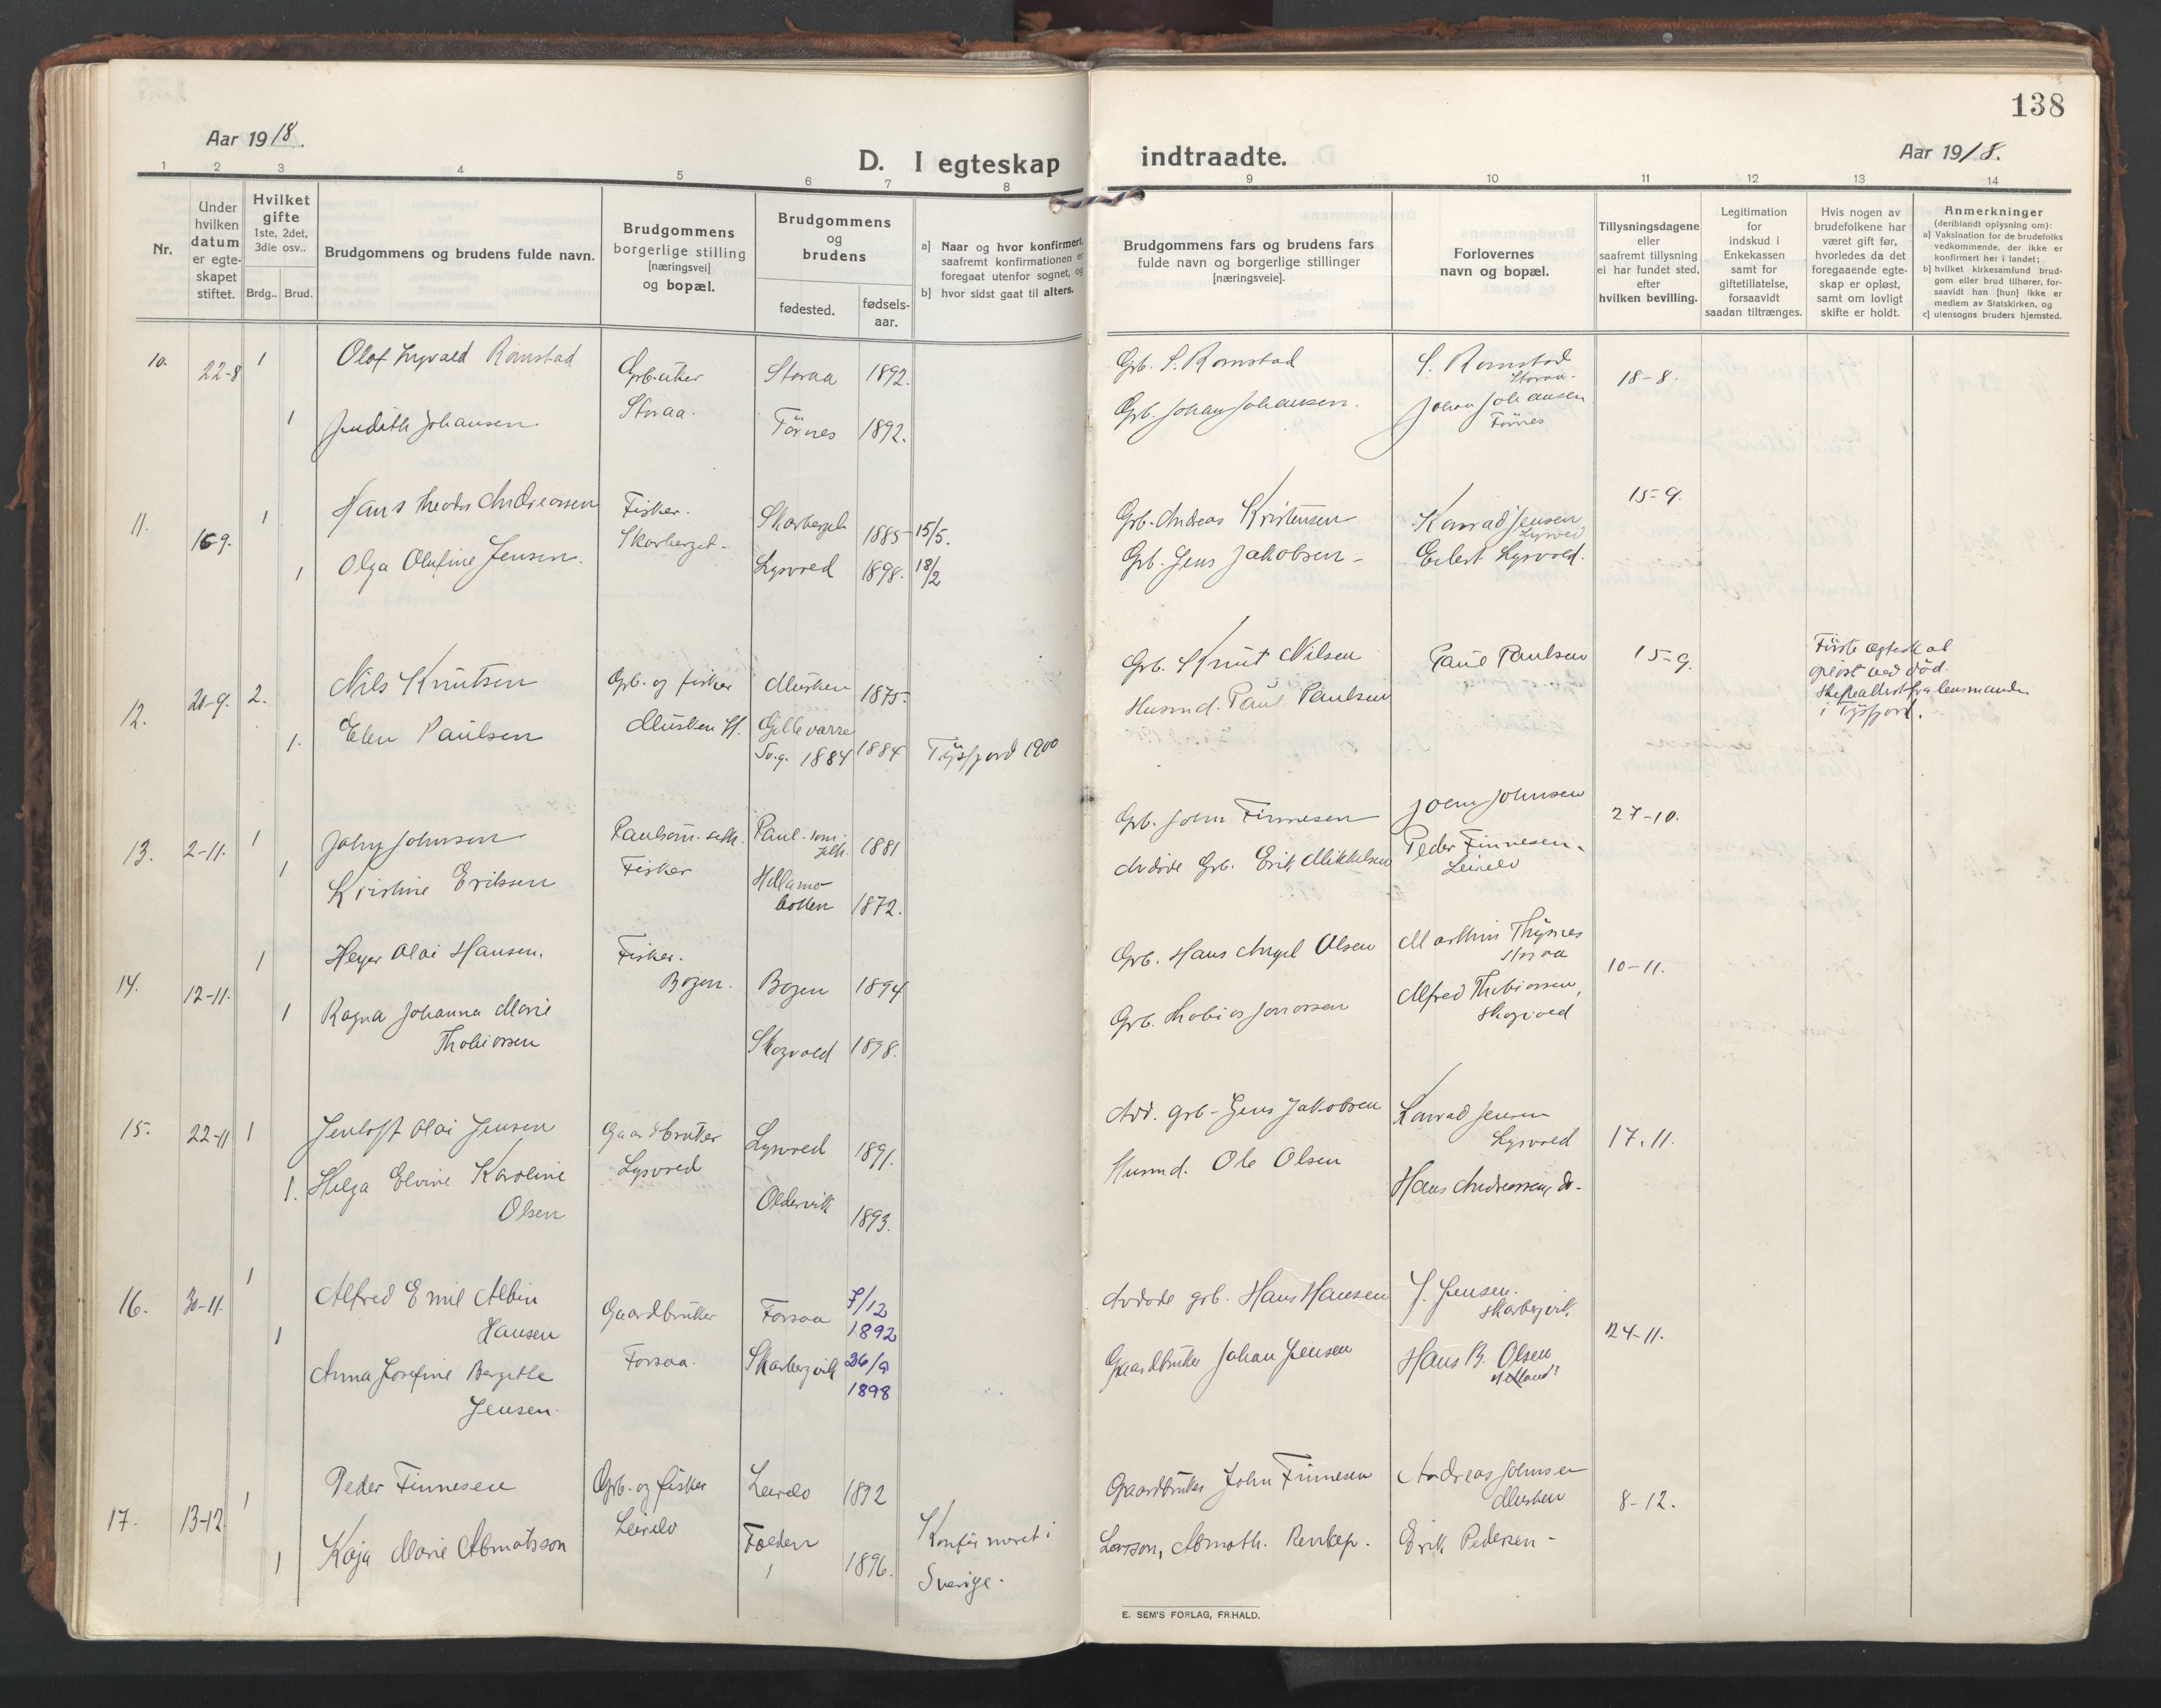 138
Aar 1918.
D. I egteskap indtraadte.
Aar 1918.
1 2 3 4 5 6 7 8 9 10 11 12 13 14
Nr.
Under hvilken datum er egteskapet stiftet.
Hvilket gifte 1ste, 2det, 3die osv..
Brdg.. Brud.
Brudgommens og brudens fulde navn.
Brudgommens borgerlige stilling [næringsvei] og bopæl.
Brudgommens og brudens
fødested.
fødsels-aar.
a] Naar og hvor konfirmert, saafremt konfirmationen er foregaat utenfor sognet, og
b] hvor sidst gaat til alters.
Brudgommens fars og brudens fars fulde navn og borgerlige stillinger [næringsveie].
Forlovernes navn og bopæl.
Tillysningsdagene eller saafremt tillysning ei har fundet sted, efter hvilken bevilling.
Legitimation for indskud i Enkekassen samt for giftetillatelse, forsaavidt saadan tiltrænges.
Hvis nogen av brudefolkene har været gift før, hvorledes da det foregaaende egteskap er opløst, samt om lovligt skifte er holdt.
Anmerkninger (deriblandt oplysning om):
a] Vaksination for de brudefolks vedkommende, der ikke er konfirmert her i landet;
b] hvilket kirkesamfund brudgom eller brud tilhører, forsaavidt han [hun] ikke er medlem av Statskirken, og
c] utensogns bruders hjemsted.
10. 22-8 1 Olaf Ingvald Romstad Grb.uker Storaa 1892. Grb. S. Romstad S. Romstad Storaa. 18-8.
1 Judith Johansen. Storaa. Törnes 1892. Grb. Johan Johansen. Johan Johansen Törnes
11. 16-9. 1 Hans Theodor Andreassen Fisker. Skarberget 1885 15/5. Grb. Andreas Kristensen Konrad Jensen Lysvold 15-9.
1 Olga Olufine Jensen. Skarberget. Lysvold 1898. 18/2 Grb. Jens Jakobsen Eilert Lysvold.
12. 20-9. 2. Nils Knutsen Grb. og fisker Musken 1875. Grb. Knut Nilsen Paul Paulsen 15-9. Første egtesk. opløst ved død.
1. Elen Paulsen Musken Gellevarre Sv.g. 1884 1884 Tysfjord 1900 Husmd. Paul Paulsen i Tysfjord.
13. 2-11. 1 John Johnsen Fisker 1881 Grb. John Finnesen John Johnsen 27-10.
1 Kirstine Eriksen Hellamobotten 1872. Avdøde Grb. Erik Mikkelsen Peder Finnesen. Leirelv
14. 12-11. 1 Heger Olai Hansen. Fisker. Bogen. Bogen 1894 Grb. Hans Angel Olsen Marthin Thysnes Storaa 10-11.
1 Ragna Johanna Marie Thobiassen Skogvold 1898. Grb. Thobias Jonassen Alfred Thobiassen, Skogvold
15. 22-11 1 Jenloft Olai Jensen Gaardbruker Lysvold 1891. Avd. grb. Jens Jakobsen Konrad Jensen Lysvold 17.11.
1. Helga Elvine Karoline Olsen Lysvold Oldervik 1893. Husmd. Ole Olsen Hans Andreassen, do.
16. 30-11. 1 Alfred Emil Albin Hansen Gaardbruker Forsaa 7/12 1892 Avdøde grb. Hans Hansen J. Jensen. Skarbervik 24-11.
1 Anna Josefine Bergitte Jensen. Forsaa. Skarbervik 26/9 1898 Gaardbruker Johan Jensen Hans B. Olsen
17. 13-12 1 Peder Finnesen Grb. og fisker Leirelv 1892 Gaardbruker John Finnesen Andreas Johnsen Musken 8-12.
1 Kaja Marie Abmatsson Leirelv Folden 1896. Konfirmeret i Sverige. Larsson, Abmoth. Erik Pedersen
E. SEM'S FORLAG, FR.HALD.